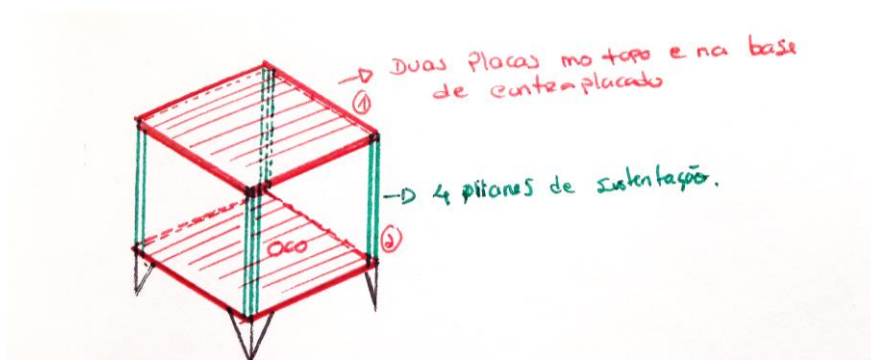 → Duas Placas no topo e na base
de contraplacado
①
→ 4 pilares de sustentação.
②
oco